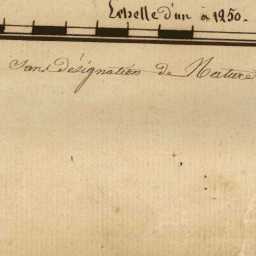 Echelle d'un à 1250.
Sans désignation de Nature